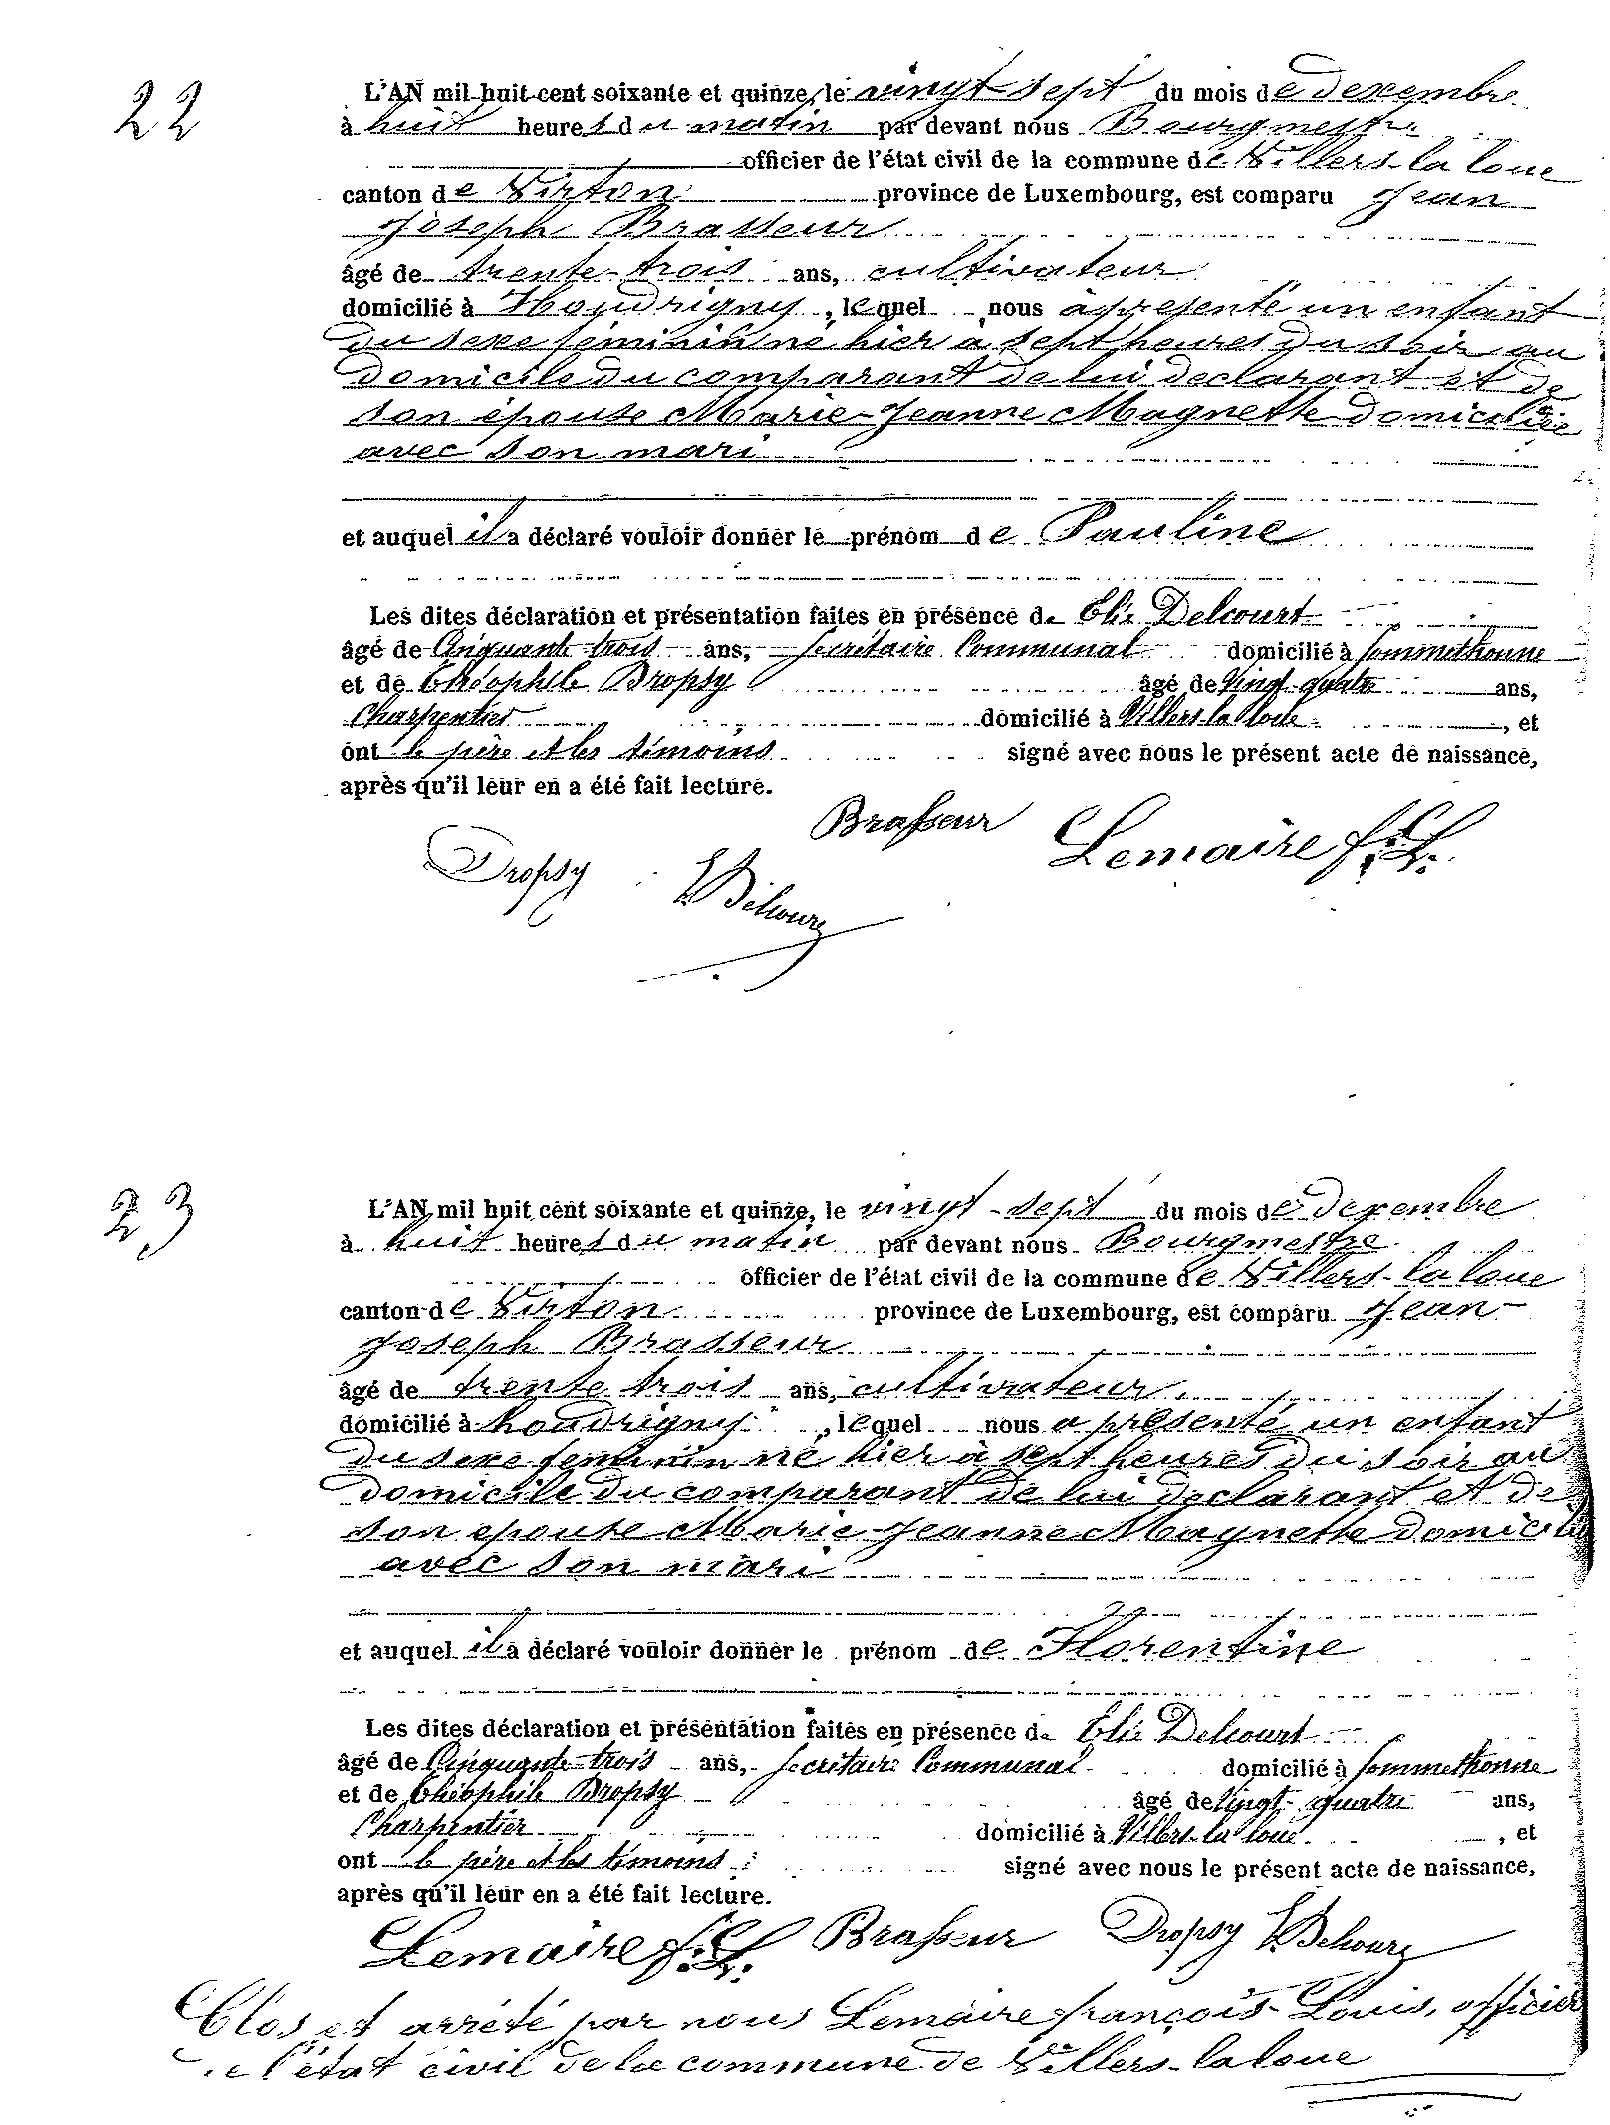 22
L'AN mil huit cent soixante et quinze, le vingt sept du mois de decembre
à huit heures du matin par devant nous Bourgmestre
officier de l'état civil de la commune de Villers-la loue
canton de Virton province de Luxembourg, est comparu Jean
Joseph Brasseur
âgé de trente-trois ans, cultivateur
domicilié à Houdrigny, lequel nous a présenté un enfant
du sexe féminin né hier à sept heures du soir au
domicile du comparant de lui declarant et de
son épouse Marie-Jeanne Magnette domiciliée
avec son mari
et auquel il a déclaré vouloir donner le prénom de Pauline
Les dites déclaration et présentation faites en présence de Elie Delcourt
âgé de Cinquante-trois ans, Secrétaire Communal domicilié à Sommethonne
et de Théophile Dropsy âgé de Vingt-quatre ans,
Charpentier domicilié à Villers-la loue, et
ont le père et les témoins signé avec nous le présent acte de naissance,
après qu'il leur en a été fait lecture.
Brasseur Lemaire f. L.
Dropsy E Delcourt
23
L'AN mil huit cent soixante et quinze, le vingt-sept du mois de decembre
à huit heures du matin par devant nous Bourgmestre
officier de l'état civil de la commune de Villers-la loue
canton de Virton province de Luxembourg, est comparu Jean-
Joseph Brasseur
âgé de trente trois ans, cultivateur
domicilié à houdrigny, lequel nous a présenté un enfant
du sexe feminin né hier à sept heures du soir au
domicile du comparant de lui declarant et de
son epouse Marie-Jeanne Magnette domicili
avec son mari
et auquel il a déclaré vouloir donner le prénom de Florentine
Les dites déclaration et présentation faites en présence de Elie Delcourt
âgé de Cinquante-trois ans, Secrétaire Communal domicilié à Sommethonne
et de Théophile Dropsy âgé de Vingt-quatre ans,
Charpentier domicilié à Villers-la loue, et
ont le père et les témoins signé avec nous le présent acte de naissance,
après qu'il leur en a été fait lecture.
Lemaire f. L. Brasseur Dropsy E. Delcourt
Clos et arrété par nous Lemaire françois-Louis, officier
de l'état civil de la commune de Villers-la loue